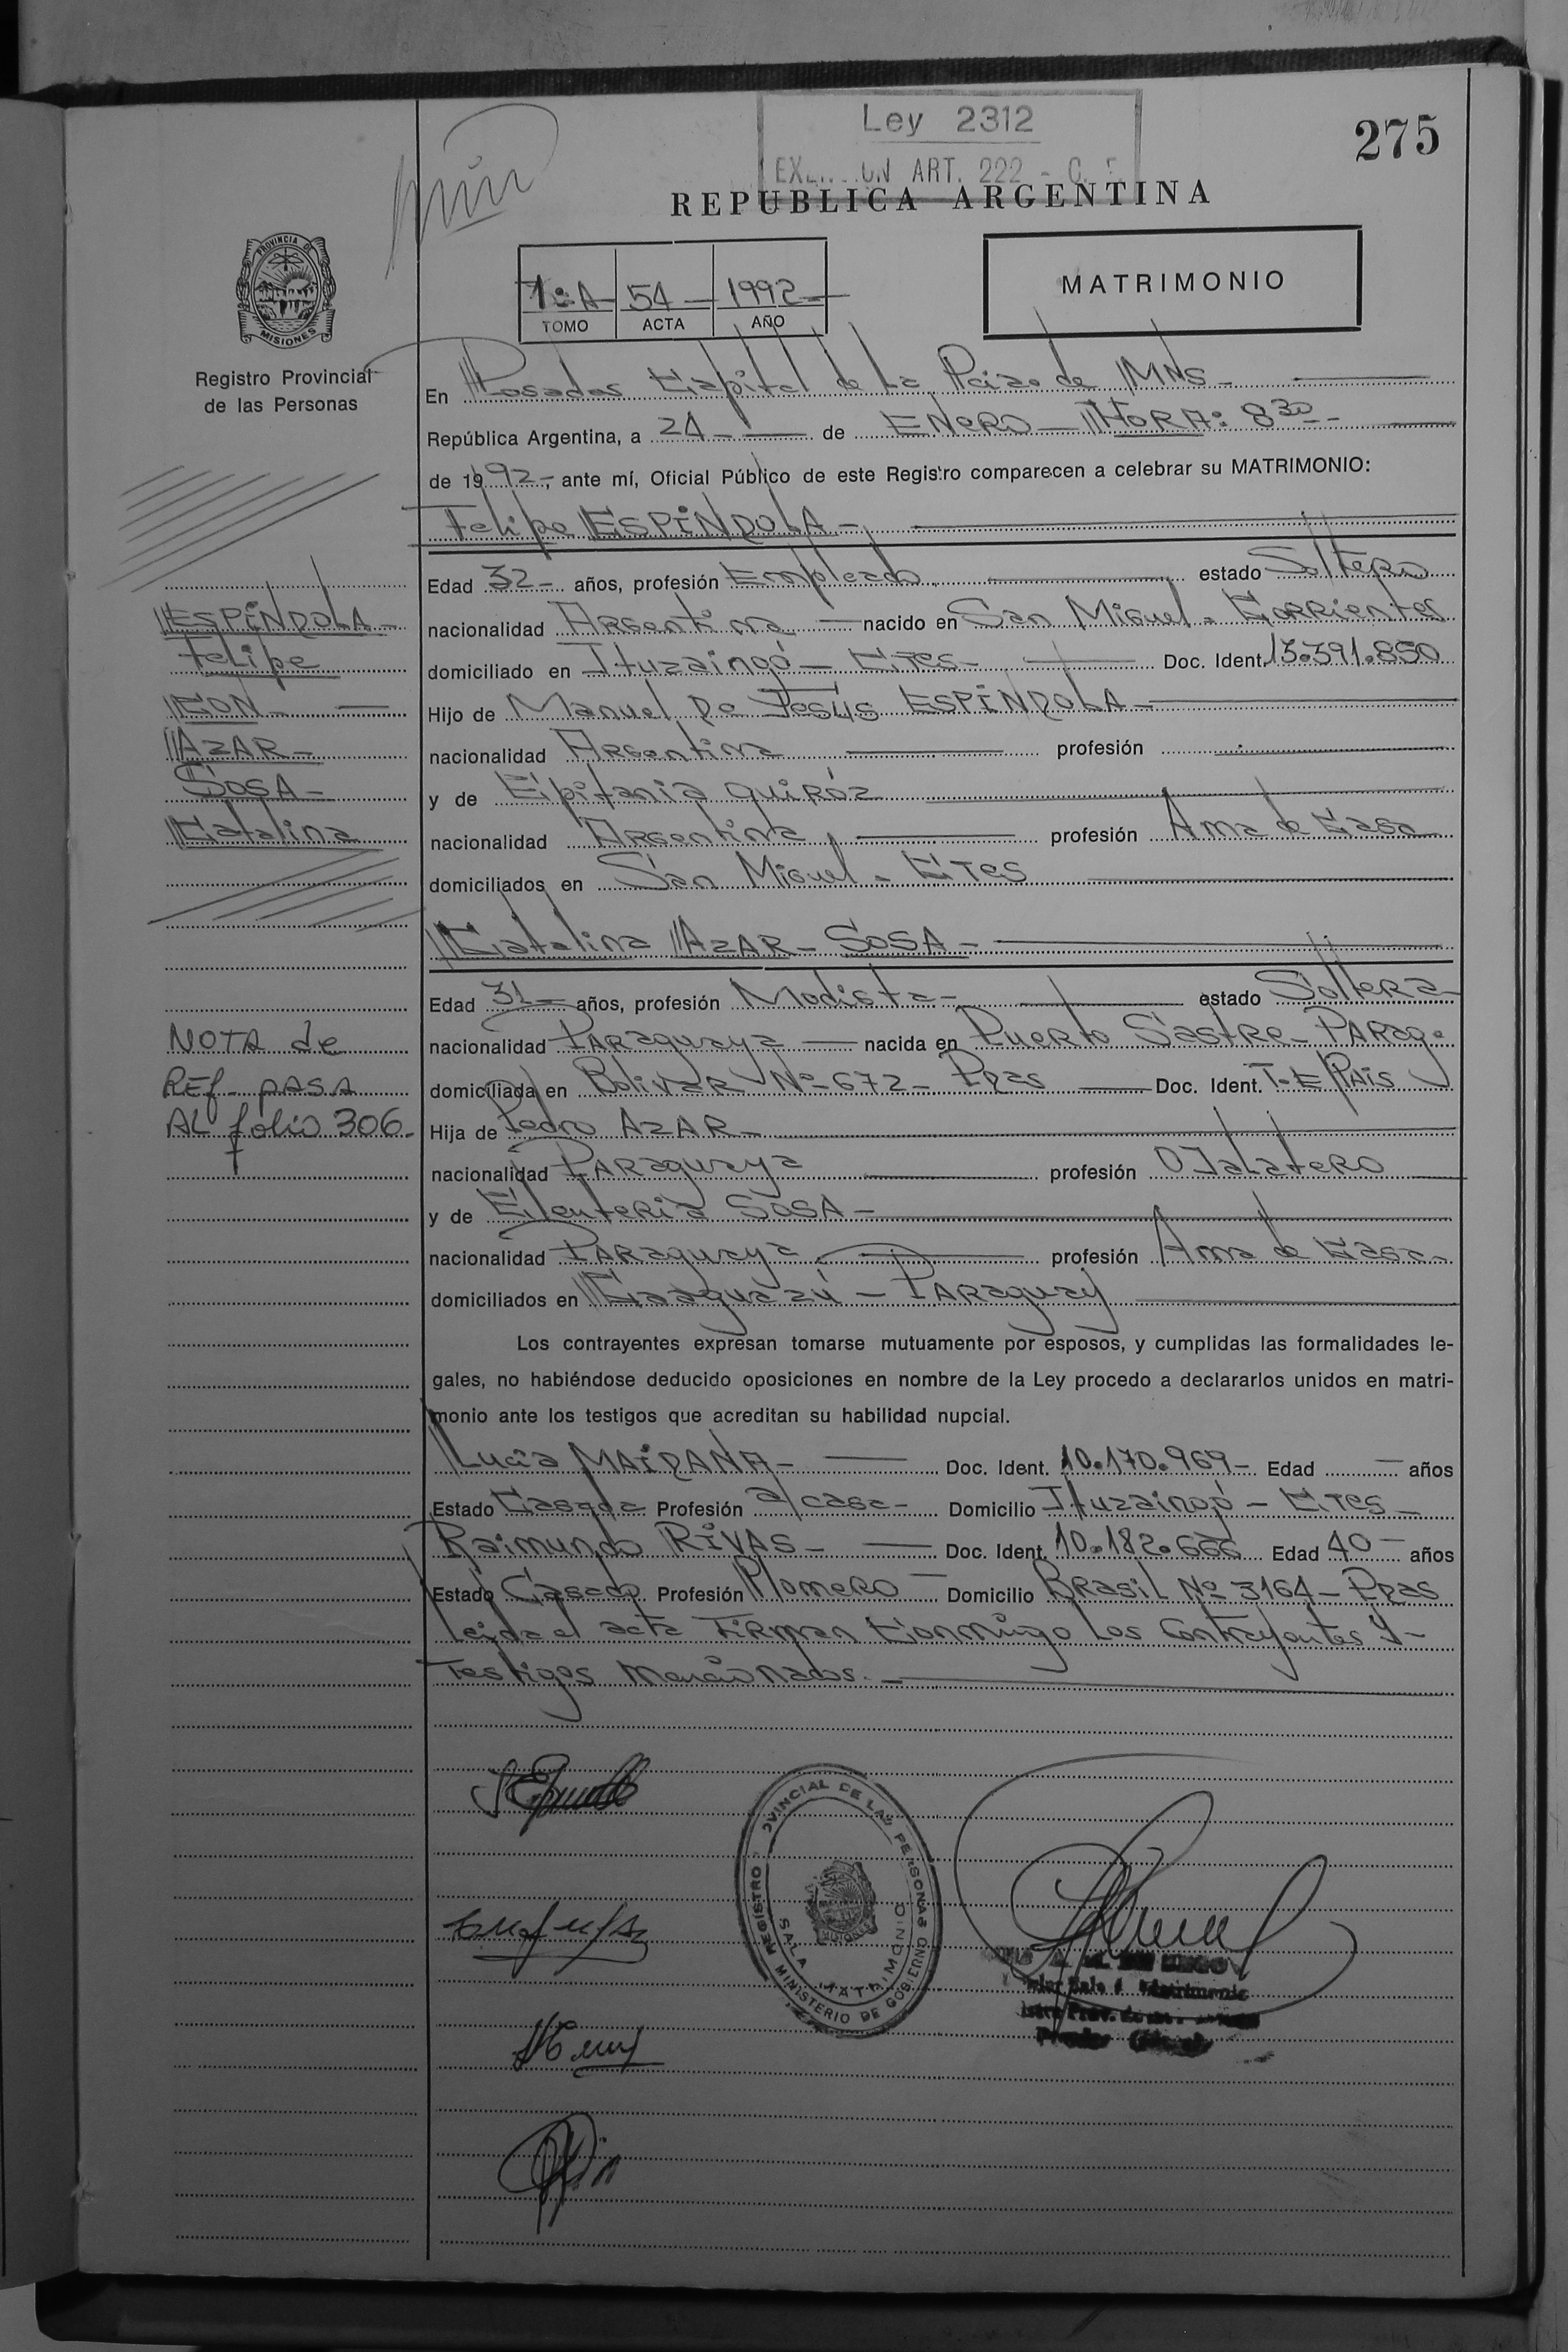 Ley 2312
ART. 222 -
275
REPUBLICA ARGENTINA
PROVINCIA DE
MISIONES
Registro Provincial
de las Personas
1º A 54 1992
TOMO ACTA AÑO
MATRIMONIO
En Posadas Capital de la Pcia. de MNS -
República Argentina, a 24 - de ENERO - HORA: 8 30 -
de 1992 -, ante mí, Oficial Público de este Registro comparecen a celebrar su MATRIMONIO:
Felipe ESPÍNDOLA -
Edad 32 - años, profesión Empleado estado Soltero
nacionalidad Argentina nacido en San Miguel - Corrientes
domiciliado en Ituzaingó - CTES - Doc. Ident. 13.391.850
Hijo de Manuel De Jesús ESPÍNDOLA -
nacionalidad Argentina profesión
y de Epifania Quiróz
nacionalidad Argentina profesión Ama de Casa
domiciliados en San Miguel - CTES
ESPÍNDOLA -
Felipe
CON
AZAR -
SOSA -
Catalina
Catalina AZAR - SOSA -
Edad 31 - años, profesión Modista - estado Soltera
nacionalidad Paraguaya nacida en Puerto Sastre - PARAG.
domiciliada en Bolivar Nº 672 - Pdas Doc. Ident. T. E PAIS
Hija de Pedro AZAR -
nacionalidad Paraguaya profesión OJalatero
y de Eleuteria SOSA -
nacionalidad Paraguaya profesión Ama de Casa -
domiciliados en Caaguazú - Paraguay
NOTA de
REf - PASA
AL folio 306 -
Los contrayentes expresan tomarse mutuamente por esposos, y cumplidas las formalidades le-
gales, no habiéndose deducido oposiciones en nombre de la Ley procedo a declararlos unidos en matri-
monio ante los testigos que acreditan su habilidad nupcial.
Lucía MAIDANA - Doc. Ident. 10.170.969 - Edad - años
Estado Casada Profesión a/casa - Domicilio Ituzaingó - CTES -
Raimundo RIVAS - Doc. Ident. 10.182.666 Edad 40 - años
Estado Casado Profesión Plomero - Domicilio BRASIL Nº 3164 - Pdas
leida el acta Firman Conmigo los Contrayentes y -
Testigos Mencionados. -
REGISTRO PROVINCIAL DE LAS PERSONAS
SALA MATRIMONIO
MINISTERIO DE GOBIERNO